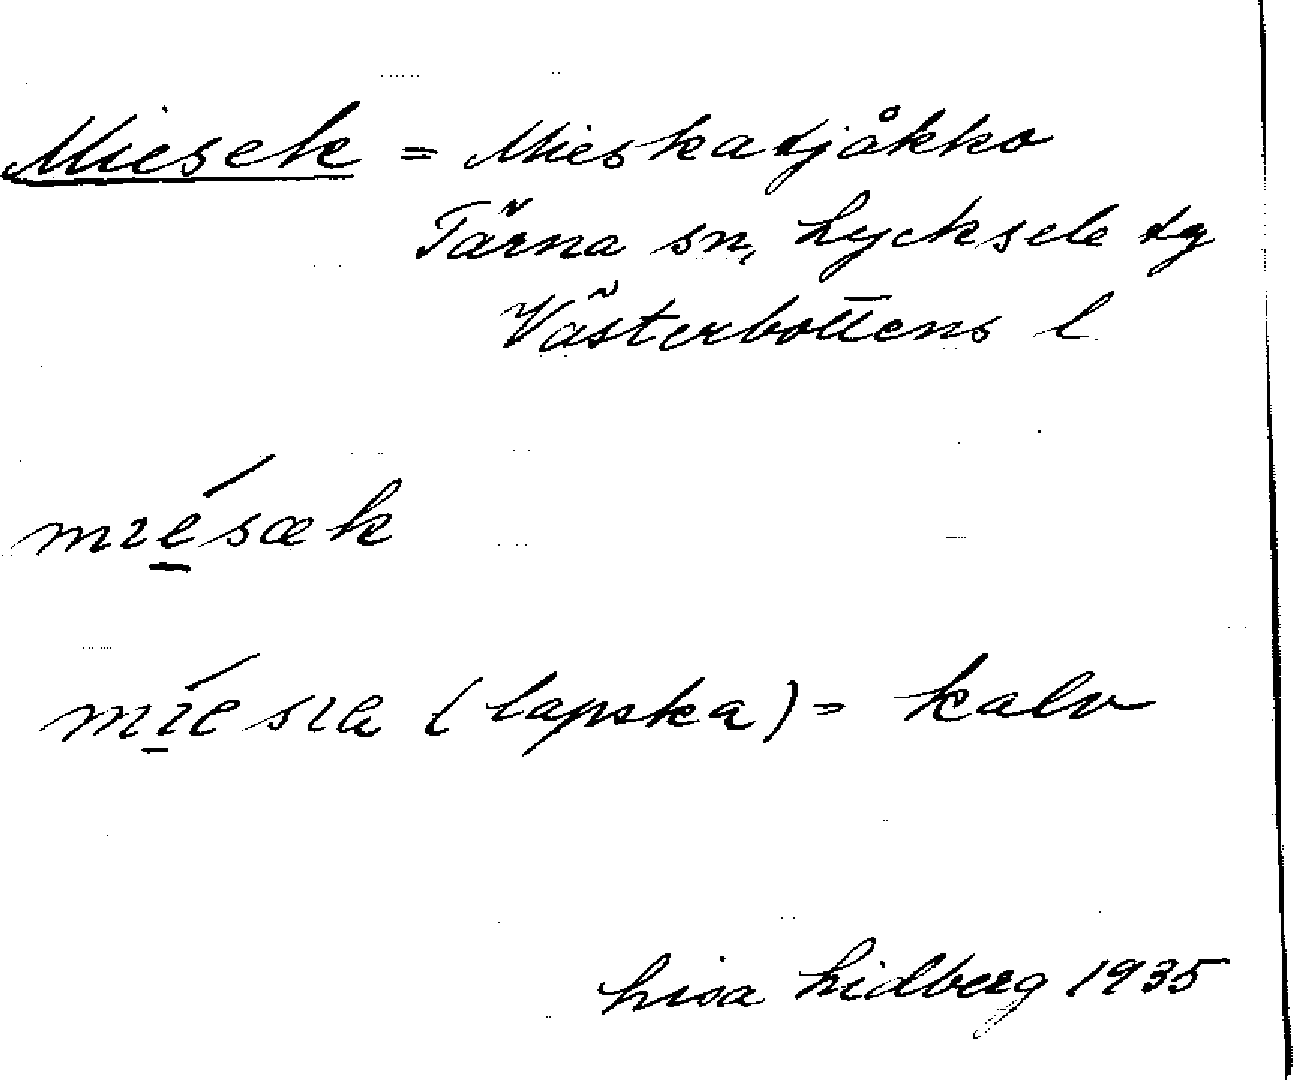 Miesek = Mieskatjåkko
Tärna sn, Lycksele dg
Västerbottens l
mıé̱sæk
mı̱́esıa (lapska) = kalv
Lisa Lidberg 1935